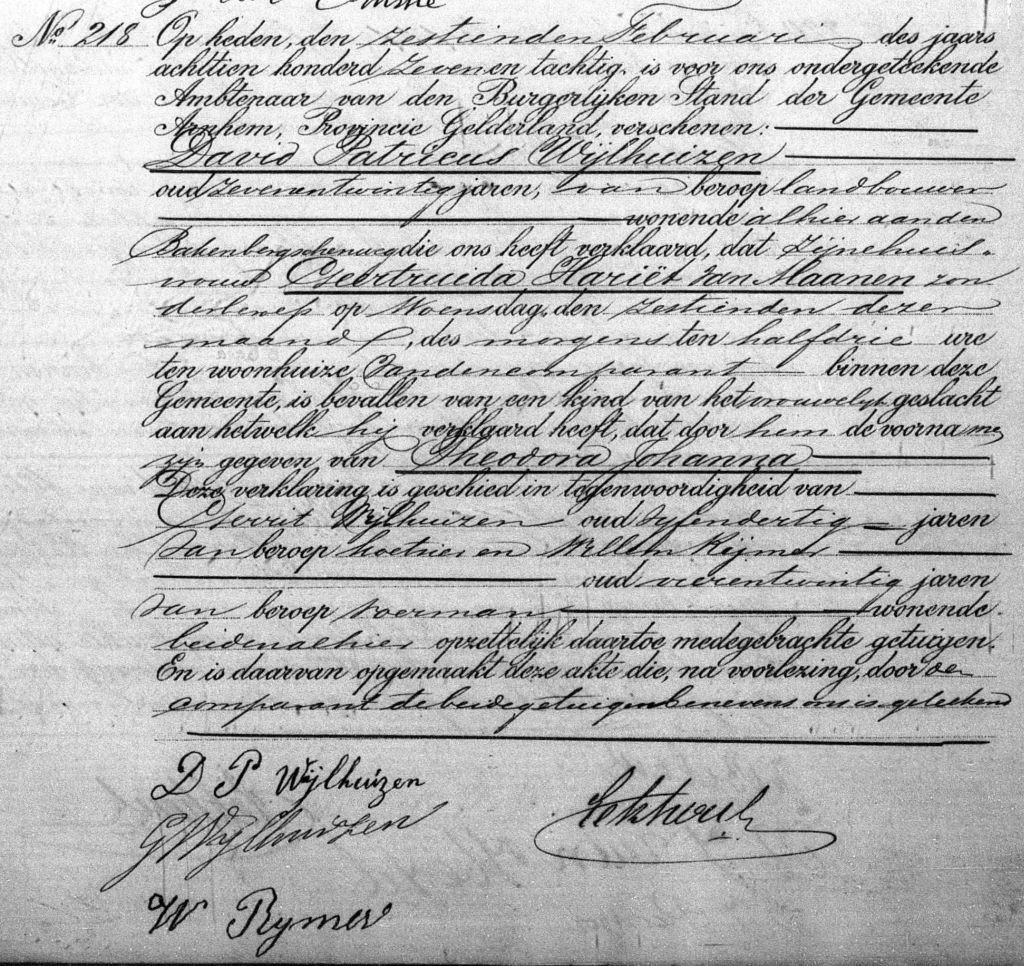 No. 218 Op heden, den zestienden Februari des jaars
achttien honderd zeven en tachtig. is voor ons ondergeteekende
Ambtenaar van den Burgerlijken Stand der Gemeente
Arnhem, Provincie Gelderland, verschenen:
David Patricus Wijlhuizen
oud zevenentwintig jaren, van beroep landbouwer
wonende alhier aan den
Bakenbergschenweg die ons heeft verklaard, dat zijne huis-
vrouw Geertruida Hariët van Maanen zon
der beroep op Woensdag, den zestienden dezer
maand, des morgens ten half drie ure
ten woonhuize van den comparant binnen deze
Gemeente, is bevallen van een kind van het vrouwelijk geslacht
aan hetwelk hij verklaard heeft, dat door hem de voorname
zijn gegeven van Theodora Johanna
Deze verklaring is geschied in tegenwoordigheid van
Gerrit Wijlhuizen oud vyfendertig jaren
van beroep koetsier en Willem Rijmer
oud vierentwintig jaren
van beroep voerman wonende
beiden alhier opzettelijk daartoe medegebrachte getuigen.
En is daarvan opgemaakt deze akte die, na voorlezing, door de
comparant de beide getuigen benevens ons is geteekend
D P Wijlhuizen
G Wijlhuizen
W Rymer